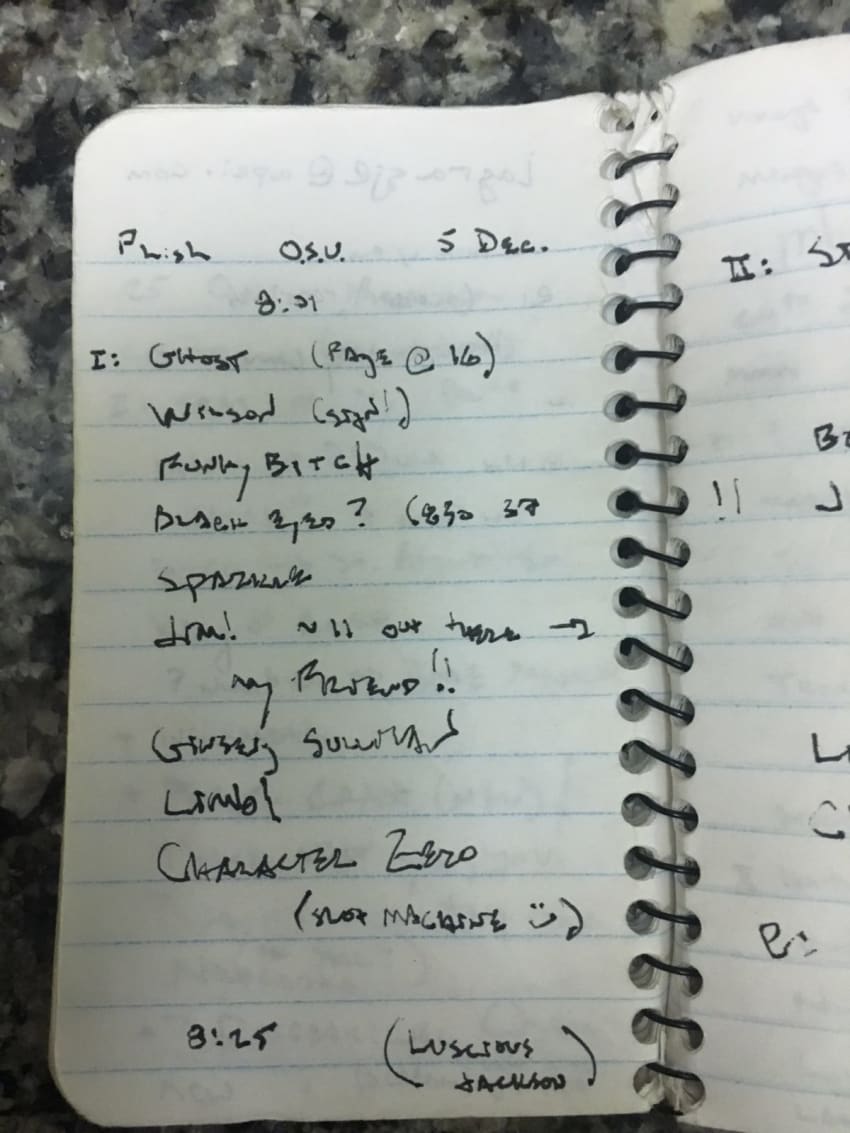 Phish O.S.U. 5 Dec.
I: GHOST (PAGE @ 16)
WILSON (SIGN!)
FUNKY BITCH
BLACK EYED? (
SPARKLE
JIM! ~ 11 out there →
my FRIEND!!
GINSENG SULLIVAN
LIMB
CHARACTER ZERO
(SLOT MACHINE :))
8:25 (LUSCIOUS
JACKSON)
II: ST
!! J
L
C
E: